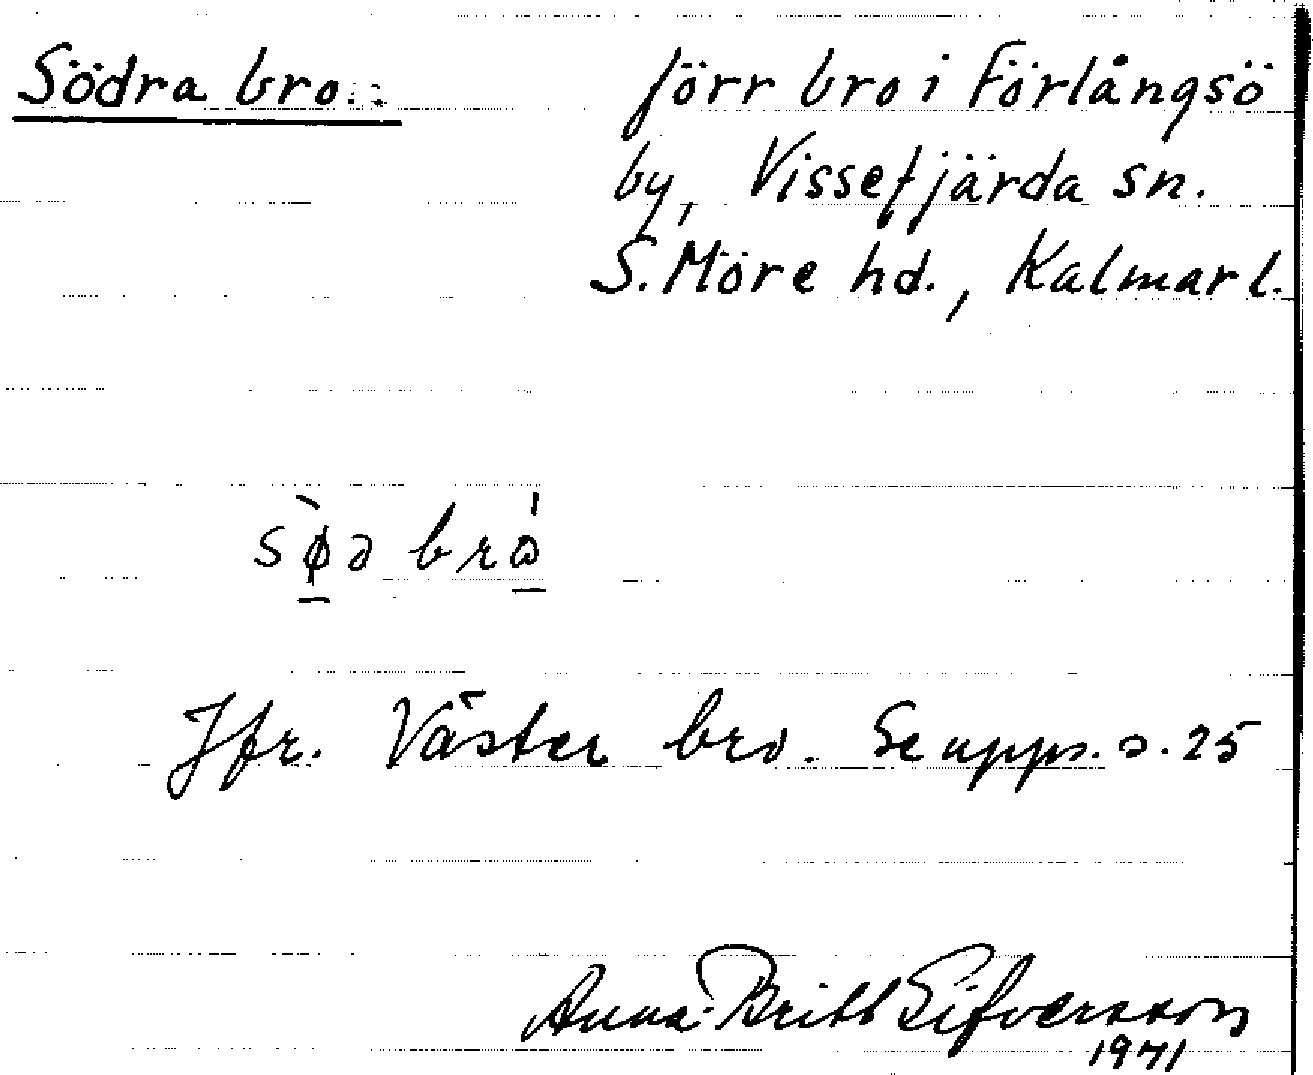 Södra bro. förr bro i Förlångsö
by, Vissefjärda sn.
S. Möre hd., Kalmar l.
sø̀ə bró
Jfr. Väster bro. Se upps. s. 25
Anna-Britt Sifversson
1971